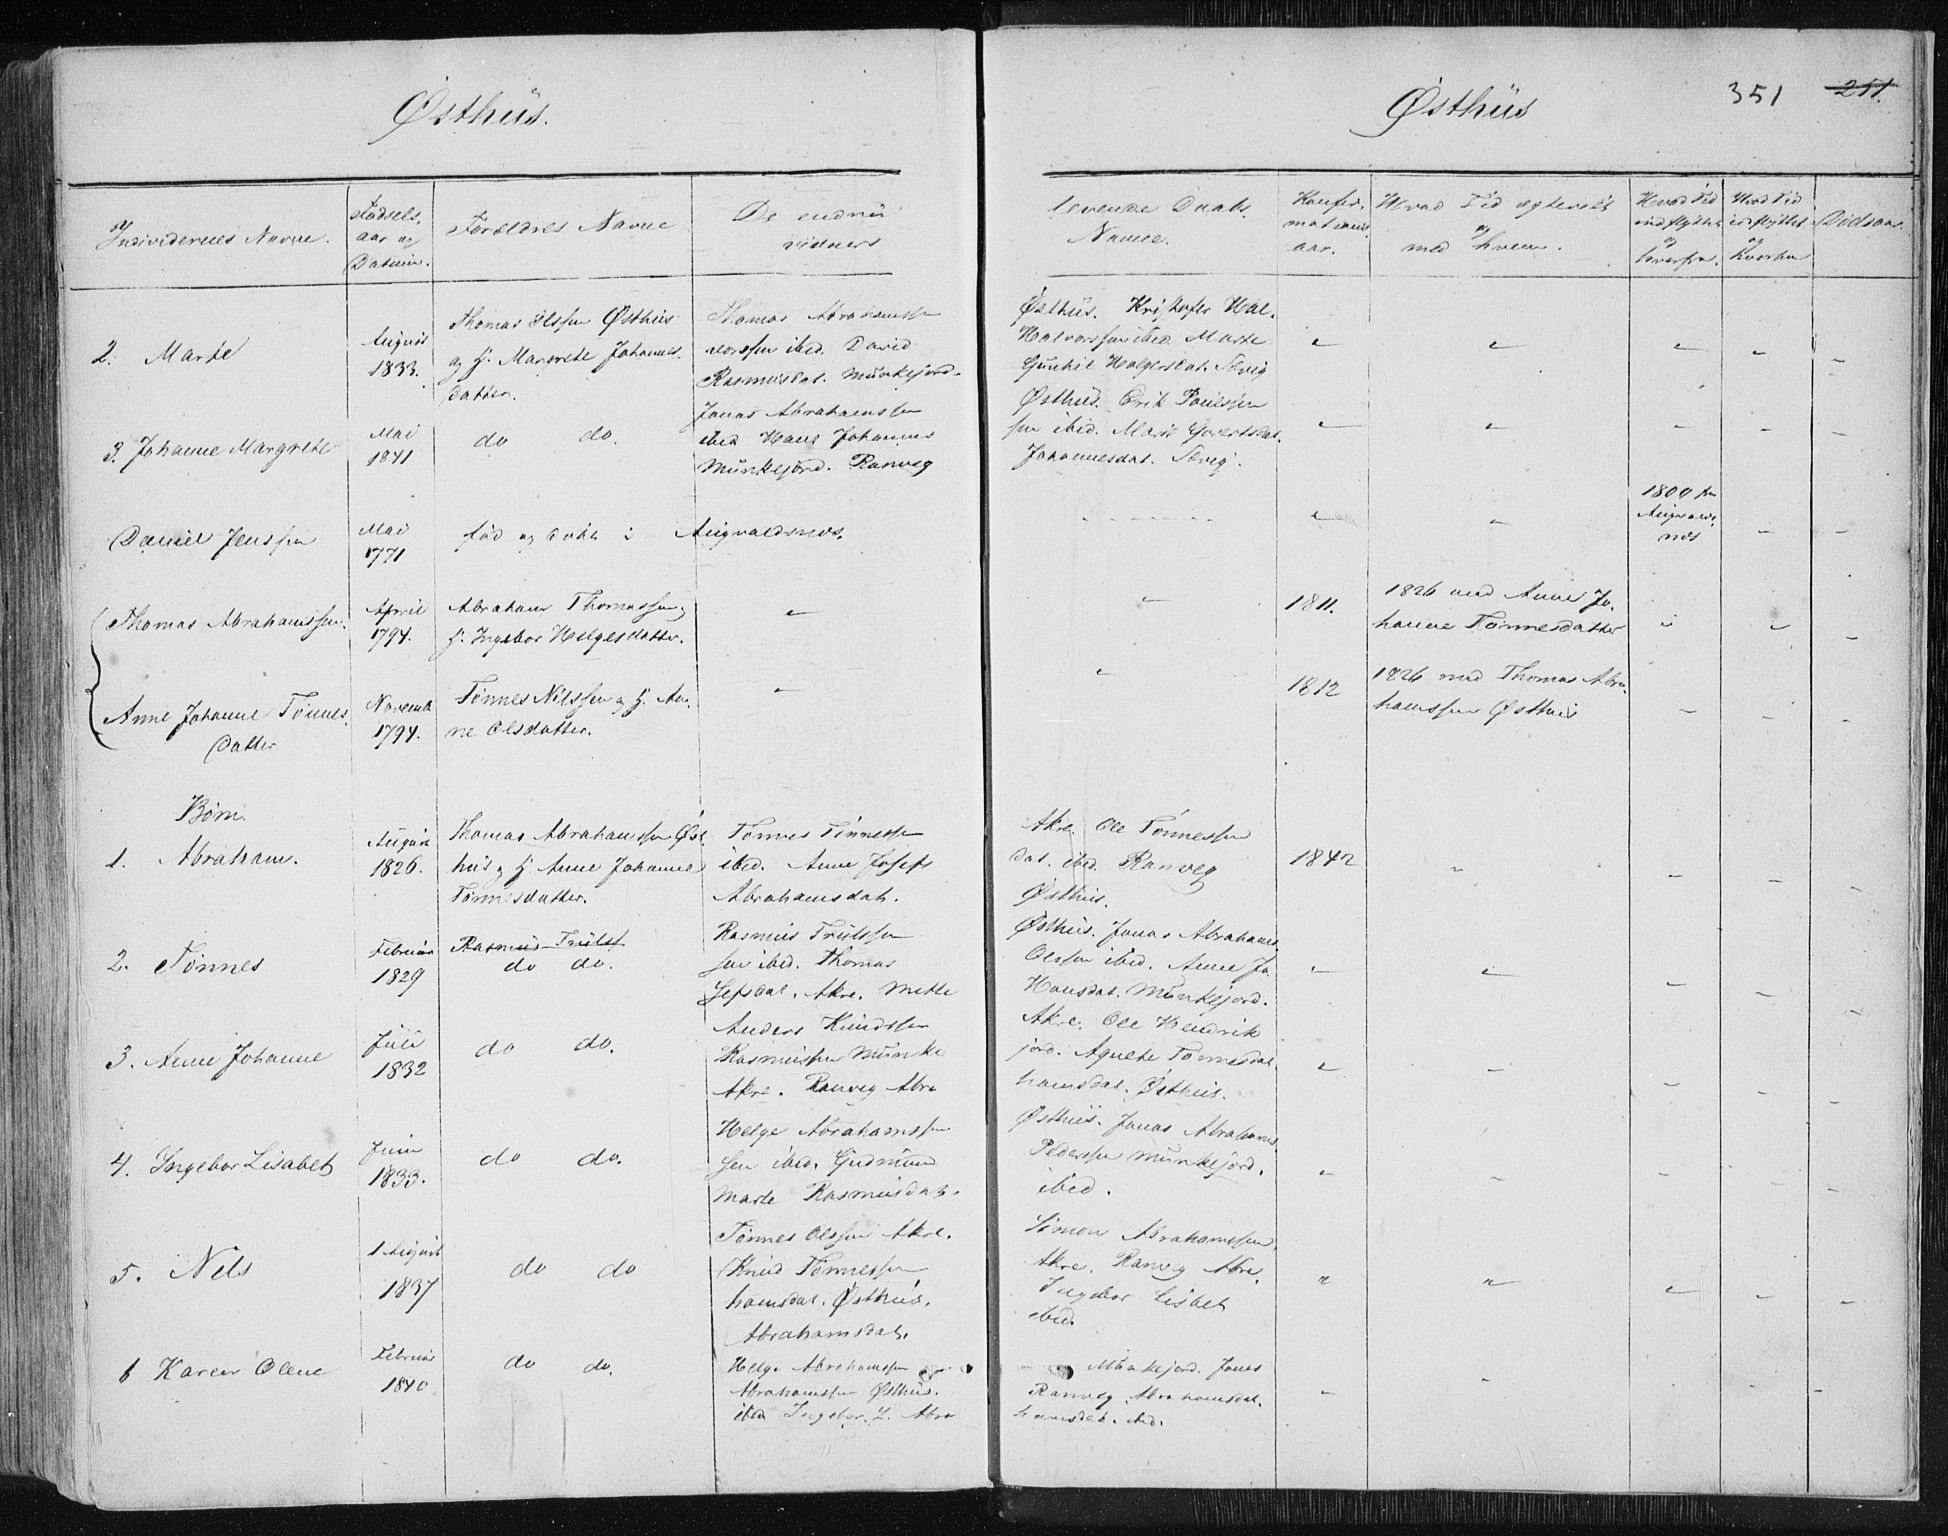 Østhüs.
Individernes Navne.
Fødsels
aar og
Datum.
Forældres Navne
De endnü
levende Daab
vidners
Navne.
Konfir
mations
aar.
Hvad Tid ægteviet
og
med hvem.
Hvad Tid
indflyttet
og
hverfra.
Hvad Tid
udflyttet
og
hvorhen
Dødsaar.
Østhüs
351
251.
2. Marte
August
1833.
Thomas Olssen Østhüs
og H. Margrete Johannes
datter.
Thomas Abrahamssen
vorssen ibid. David
Rasmusdat. Münkejord.
Østhüs. Kristofer Hal.
Halvorssen ibid. Marte
Gunhil Holgersdat. Sævig
3. Johanne Margrete
Mai
1841
do do.
Jonas Abrahamssen
ibid Hans Johannes
Münkejord. Ranveg
Østhüs. Erik Poulssen
sen ibid. Marte Govertsdat.
Johannesdat. Sævig.
Daniel Jenssen
Mai
1771
fød og døbt i Augvaldsnæs.
1800 fra
Augvalds
næs
Thomas Abrahamssen.
April
1794.
Abraham Thomassen,
H. Ingebor Helgesdatter.
1811.
1826 med Anne Jo.
hanne Tønnesdatter
Anne Johanne Tønnes.
datter
Novemb
1794.
Tønnes Nilssen og H. An
ne Olsdatter.
1812
1826 med Thomas Abra.
hamssen Østhüs
Børn.
1. Abraham.
August
1826.
Thomas Abrahamssen Øst
hüs og H. Anne Johanne
Tønnesdatter.
Tønnes Tønnessen
ibid. Anne Josefs
Abrahamsdat.
Akre. Ole Tønnessen
dat. ibid. Ranveg
Østhüs.
1842
2. Tønnes
Februar
1829
Rasmus Trülss
do do.
Rasmus Trülssen
sen ibid. Thomas
sefsdat. Akre. Mette
Østhüs. Jonas Abrahams
Olssen ibid. Anne Jo
Hansdat. Münkejord.
3. Anne Johanne
Juli
1832
do do.
Anders Knudssen
Rasmussen Münke
Akre. Ranveg Abra
Akre. Ole Hendrik
jord. Agnete Tønnesdat.
hamsdat. Østhüs.
4. Ingebor Lisabet
Juni
1833.
do do.
Helge Abrahamssen
sen ibid. Gudmund
Marte Rasmusdat.
Østhüs. Jonas Abrahams
Pederssen Münkejord.
ibid.
5. Nils
1 August
1837
do do
Tønnes Olssen Akre.
Knud Tønnessen
hamsdat. Østhüs.
Abrahamsdat.
Simon Abrahamssen,
Akre. Ranveg Abra.
Ingebor Lisbet
ibid.
6 Karen Olene
Februar
1840
do do.
Helge Abrahamssen
Abrahamssen Østhüs.
ibid Ingebor L. Abra
Münkejord. Jonas
Ranveg Abrahamsdat.
hamsdat. ibid.